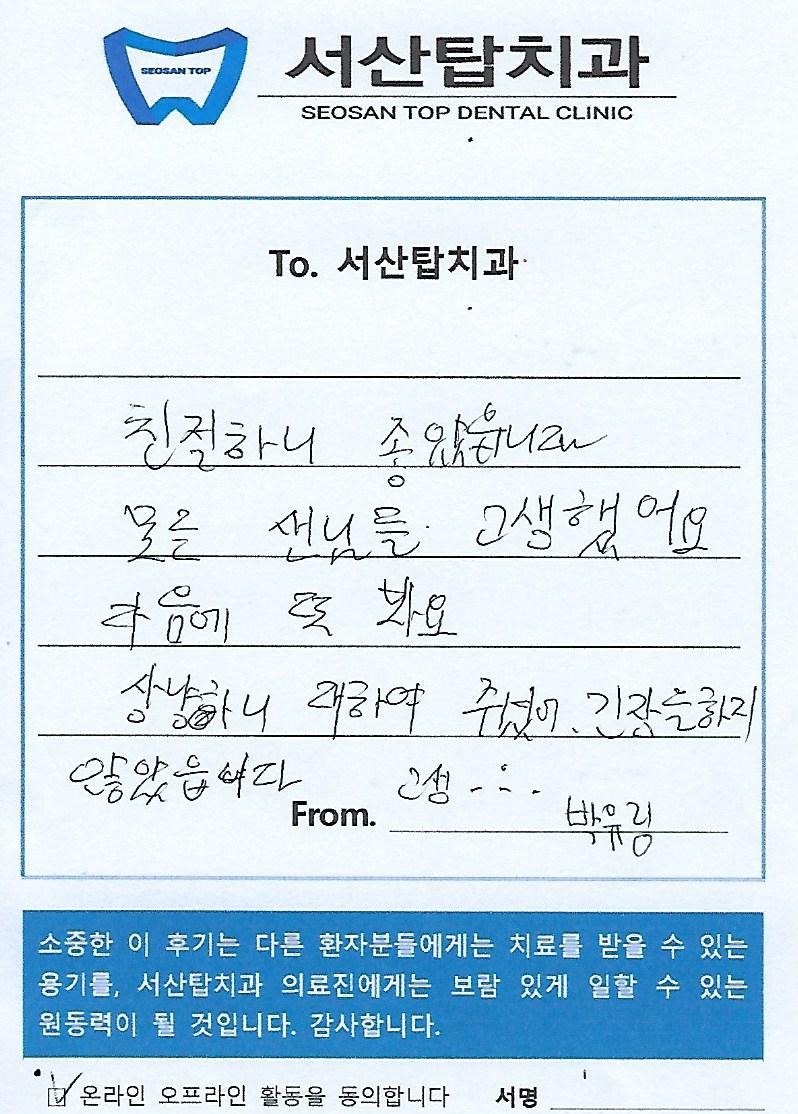 SEOSAN TOP
서산탑치과
SEOSAN TOP DENTAL CLINIC
To. 서산탑치과
친절하니 좋았읍니다
모든 선님들 고생했어요
다음에 또 봐요
상냥하니 대하여 주셨어 긴장들하지
않았읍니다 고생
From. 박유림
소중한 이 후기는 다른 환자분들에게는 치료를 받을 수 있는
용기를, 서산탑치과 의료진에게는 보람 있게 일할 수 있는
원동력이 될 것입니다. 감사합니다.
온라인 오프라인 활동을 동의합니다 서명